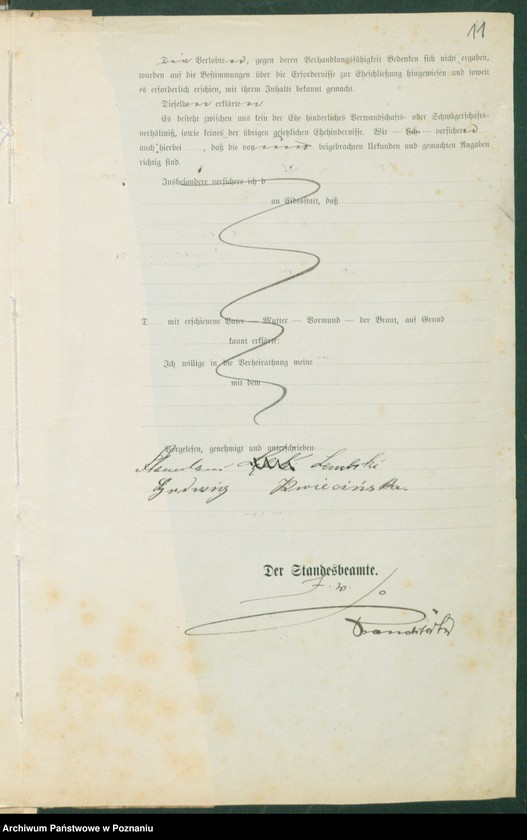 11
Die Verlobten, gegen deren Verhandlungsfähigkeit Bedenken sich nicht ergaben,
wurden auf die Bestimmungen über die Erfordernisse zur Eheschließung hingewiesen und soweit
es erforderlich erschien, mit ihrem Inhalte bekannt gemacht.
Dieselben erklärten
Es besteht zwischen uns kein der Ehe hinderliches Verwandschafts- oder Schwägerschafts-
verhältniß, sowie keines der übrigen gesetzlichen Ehehindernisse. Wir — Ich — versichern
auch hierbei, daß die von uns beigebrachten Urkunden und gemachten Angaben
richtig sind.
Insbesondere versichere ich d
an Eidesstatt, daß
D mit erschienene Vater — Mutter — Vormund — der Braut, auf Grund
kannt erklärte:
Ich willige in die Verheirathung meine
mit dem
Vorgelesen, genehmigt und unterschrieben
Lembski
Hedwig Kwiecińska
Der Standesbeamte.
Archiwum Państwowe w Poznaniu